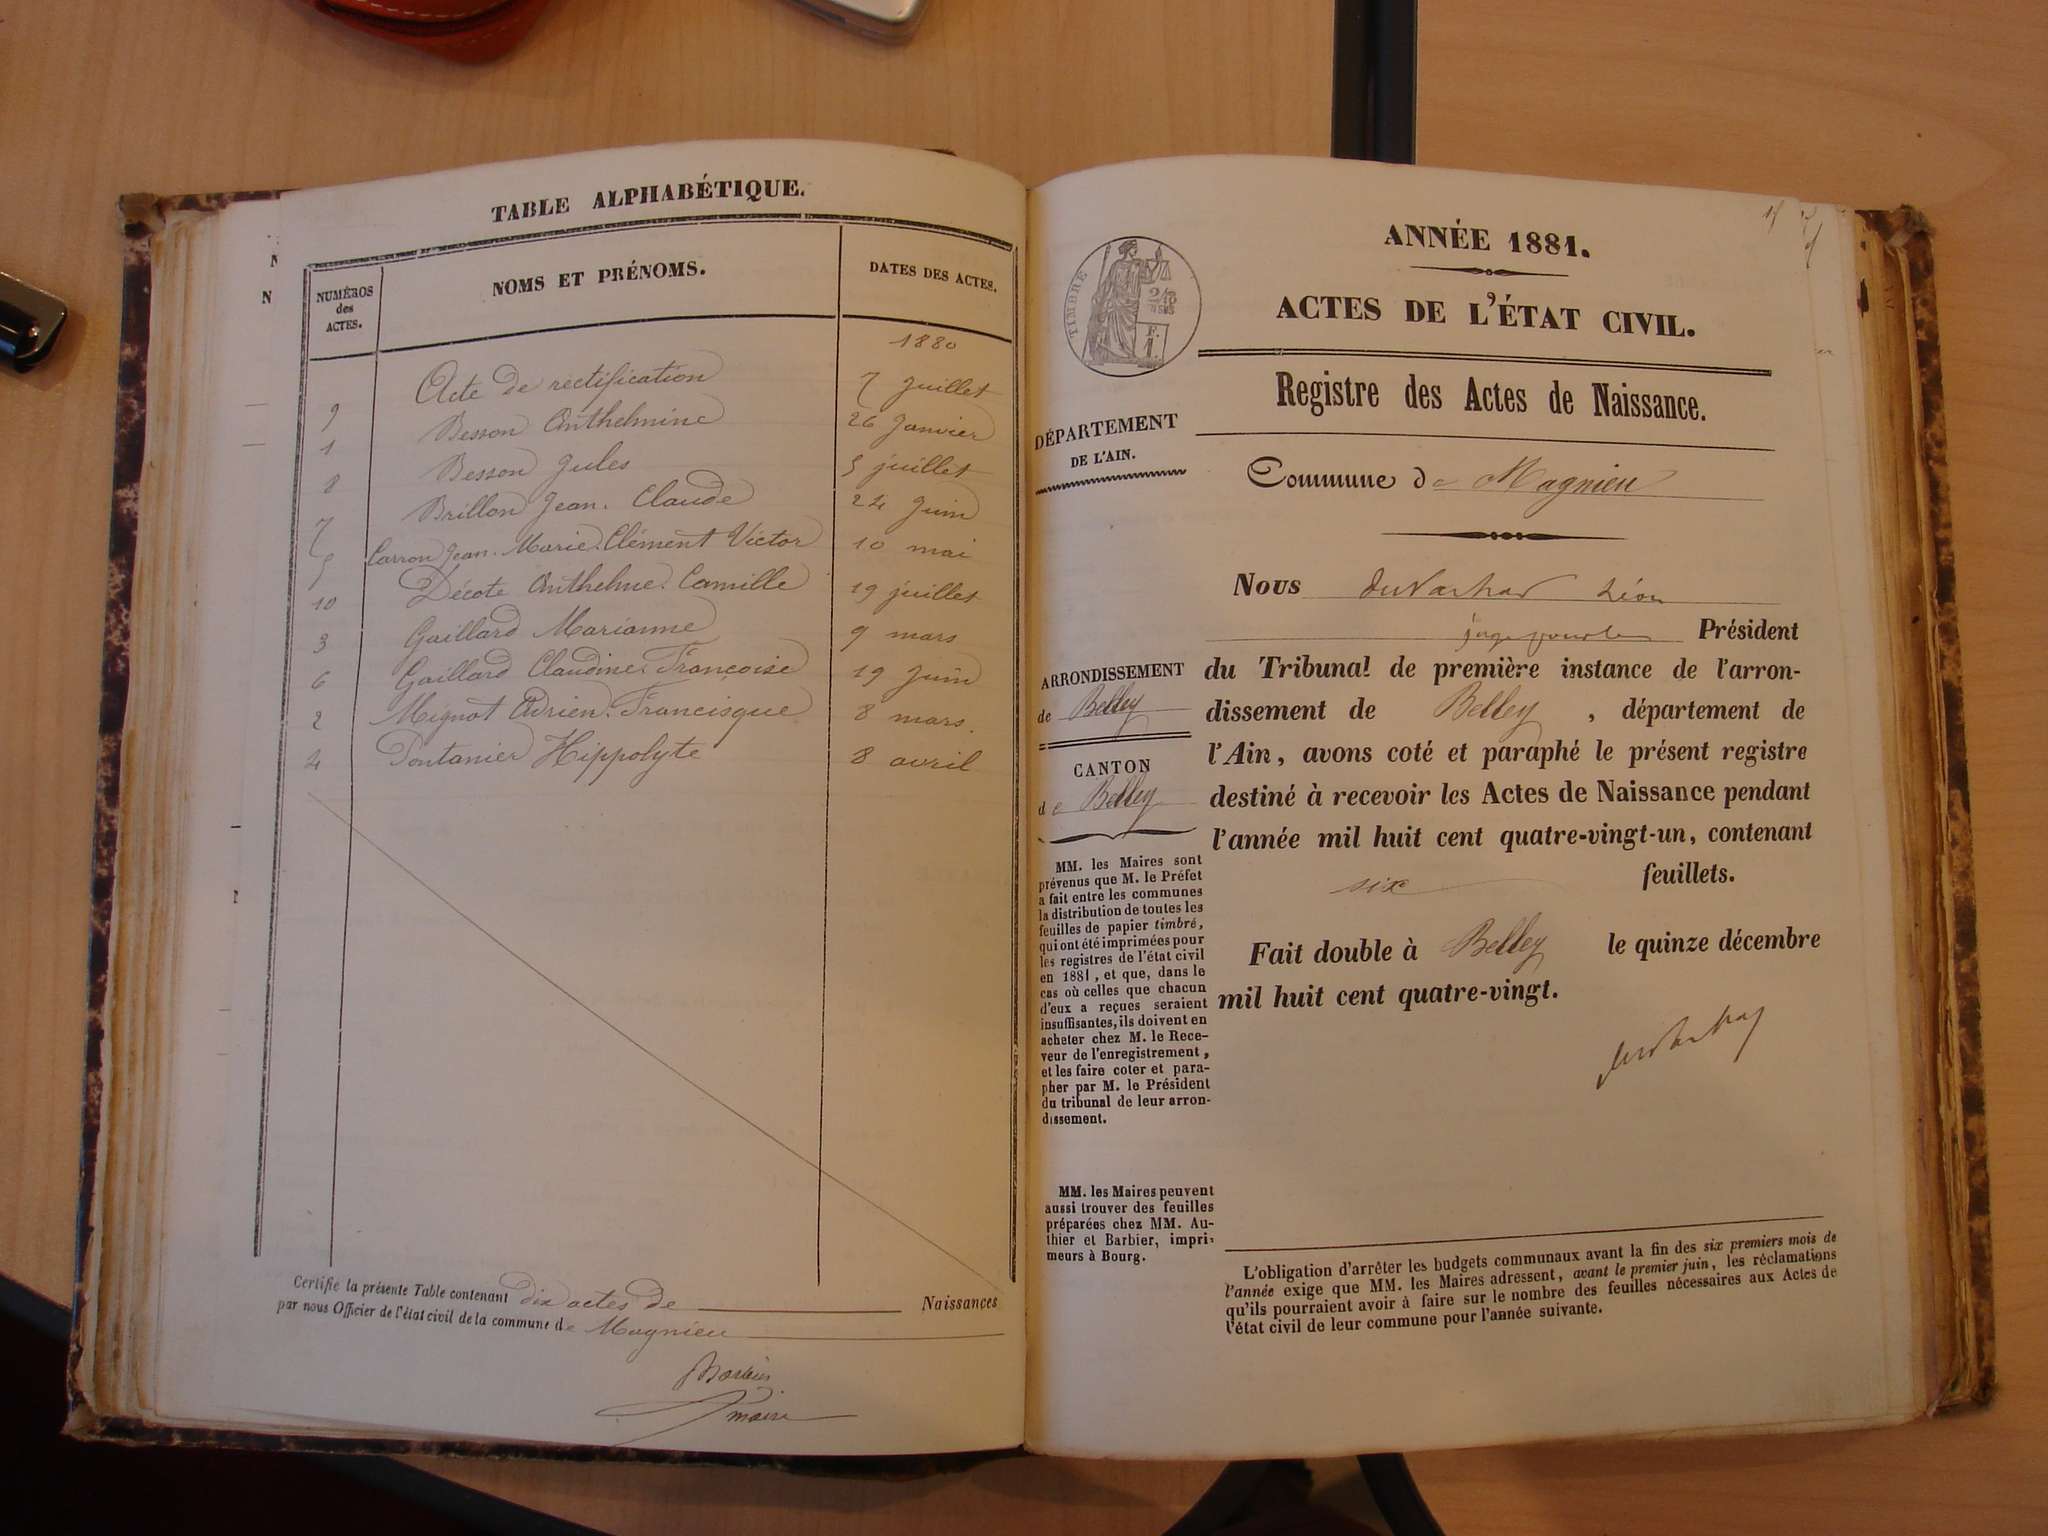 TABLE ALPHABÉTIQUE.
NUMÉROS des ACTES.
NOMS ET PRÉNOMS.
DATES DES ACTES.
1880
9 Acte de rectification 7 Juillet
1 Besson Anthelmine 26 Janvier
8 Besson Jules 5 juillet
7 Brillon Jean. Claude 24 Juin
5 Carron Jean. Marie. Clément Victor 10 mai
10 Décote Anthelme. Camille 19 juillet
3 Gaillard Marianne 9 mars
6 Gaillard Claudine. Françoise 19 Juin
2 Mignot Adrien. Francisque 8 mars.
4 Pontanier Hippolyte 8 avril
Certifie la présente Table contenant dix actes de Naissances
par nous Officier de l'état civil de la commune de Magnieu
maire
ANNÉE 1881.
ACTES DE L'ÉTAT CIVIL.
TIMBRE
Registre des Actes de Naissance.
DÉPARTEMENT
DE L'AIN.
Commune de Magnieu
Nous Léon
Président
ARRONDISSEMENT
de Belley
CANTON
de Belley
du Tribunal de première instance de l'arron-
dissement de Belley, département de
l'Ain, avons coté et paraphé le présent registre
destiné à recevoir les Actes de Naissance pendant
l'année mil huit cent quatre-vingt-un, contenant
six feuillets.
Fait double à Belley le quinze décembre
mil huit cent quatre-vingt.
MM. les Maires sont
prévenus que M. le Préfet
a fait entre les communes
la distribution de toutes les
feuilles de papier timbré,
qui ont été imprimées pour
les registres de l'état civil
en 1881, et que, dans le
cas où celles que chacun
d'eux a reçues seraient
insuffisantes, ils doivent en
acheter chez M. le Rece-
veur de l'enregistrement,
et les faire coter et para-
pher par M. le Président
du tribunal de leur arron-
dissement.
MM. les Maires peuvent
aussi trouver des feuilles
préparées chez MM. Au-
thier et Barbier, impri-
meurs à Bourg.
L'obligation d'arrêter les budgets communaux avant la fin des six premiers mois de
l'année exige que MM. les Maires adressent, avant le premier juin, les réclamations
qu'ils pourraient avoir à faire sur le nombre des feuilles nécessaires aux Actes de
l'état civil de leur commune pour l'année suivante.